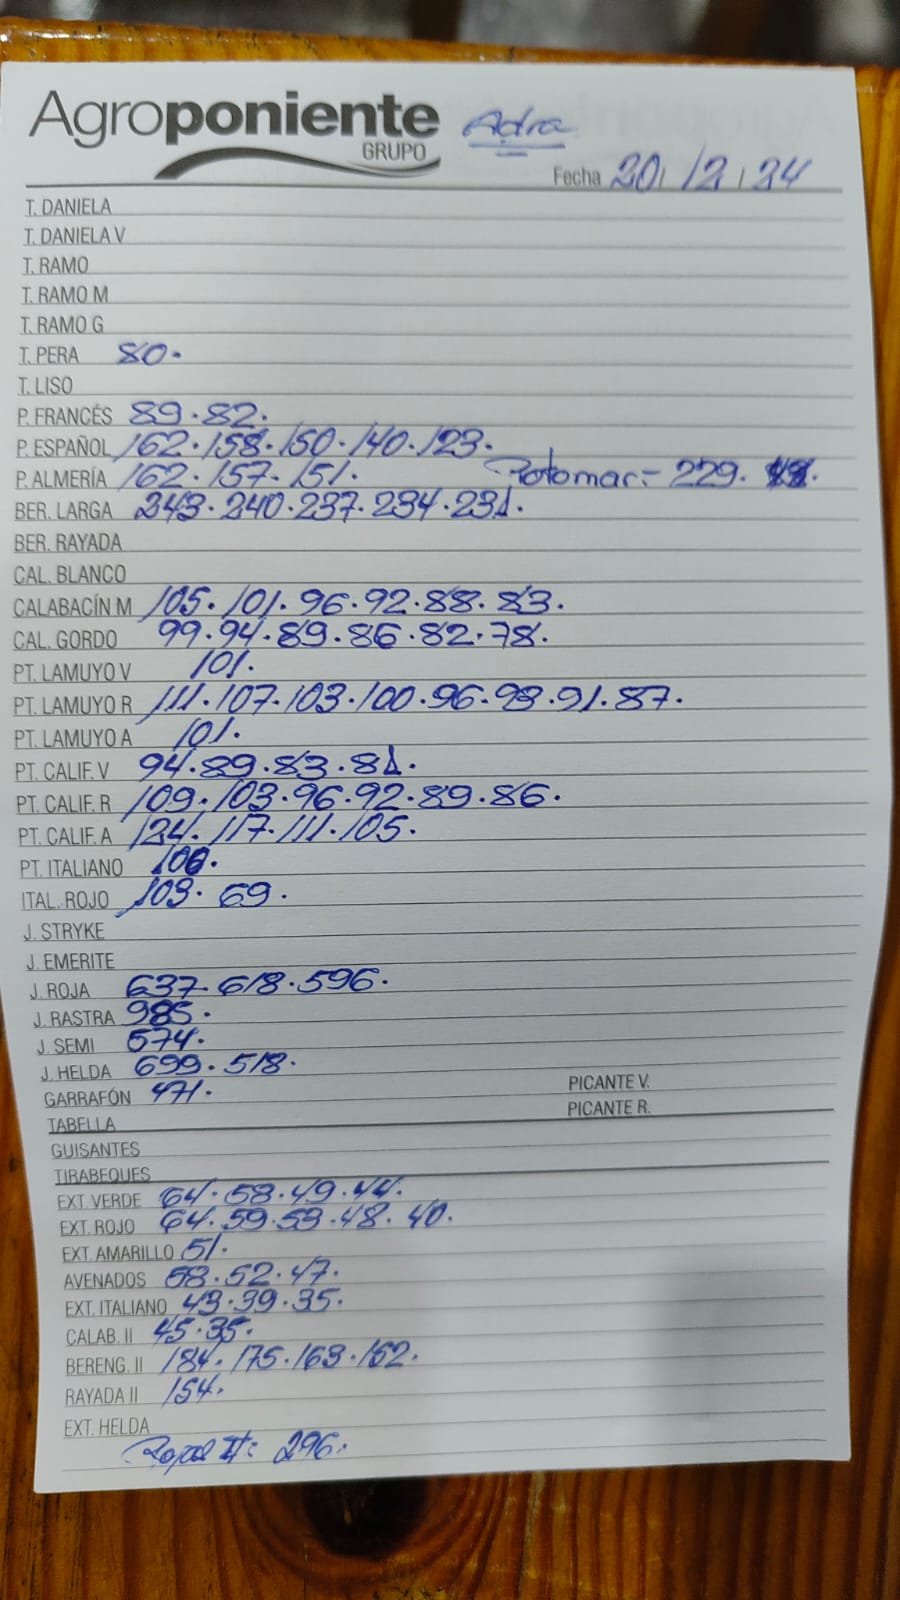 Agroponiente Adra
GRUPO
Fecha 20/12/24
T. DANIELA
T. DANIELA V
T. RAMO
T. RAMO M
T. RAMO G
T. PERA 80.
T. LISO
P. FRANCÉS 89.82.
P. ESPAÑOL 162.158.150.140.123.
P. ALMERÍA 162.157.151. Potomac:- 229.
BER. LARGA 243.240.237.234.231.
BER. RAYADA
CAL. BLANCO
CALABACÍN M 105.101.96.92.88.83.
CAL. GORDO 99.94.89.86.82.78.
PT. LAMUYO V 101.
PT. LAMUYO R 111.107.103.100.96.93.91.87.
PT. LAMUYO A 101.
PT. CALIF. V 94.89.83.81.
PT. CALIF. R 109.103.96.92.89.86.
PT. CALIF. A 124.117.111.105.
PT. ITALIANO 100.
ITAL. ROJO 103.69.
J. STRYKE
J. EMERITE
J. ROJA 637.618.596.
J. RASTRA 985.
J. SEMI 574.
J. HELDA 699.518.
GARRAFÓN 471. PICANTE V.
TABELLA PICANTE R.
GUISANTES
TIRABEQUES
EXT. VERDE 64.58.49.44.
EXT. ROJO 64.59.53.48.40.
EXT. AMARILLO 51.
AVENADOS 58.52.47.
EXT. ITALIANO 43.39.35.
CALAB. II 45.35.
BERENG. II 184.175.163.162.
RAYADA II 154.
EXT. HELDA
Rojas II: 296.